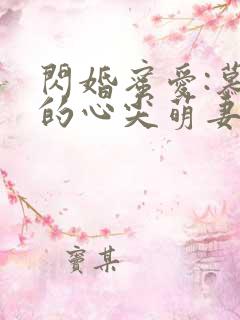 閃婚蜜愛:慕
的心尖萌妻
寶某